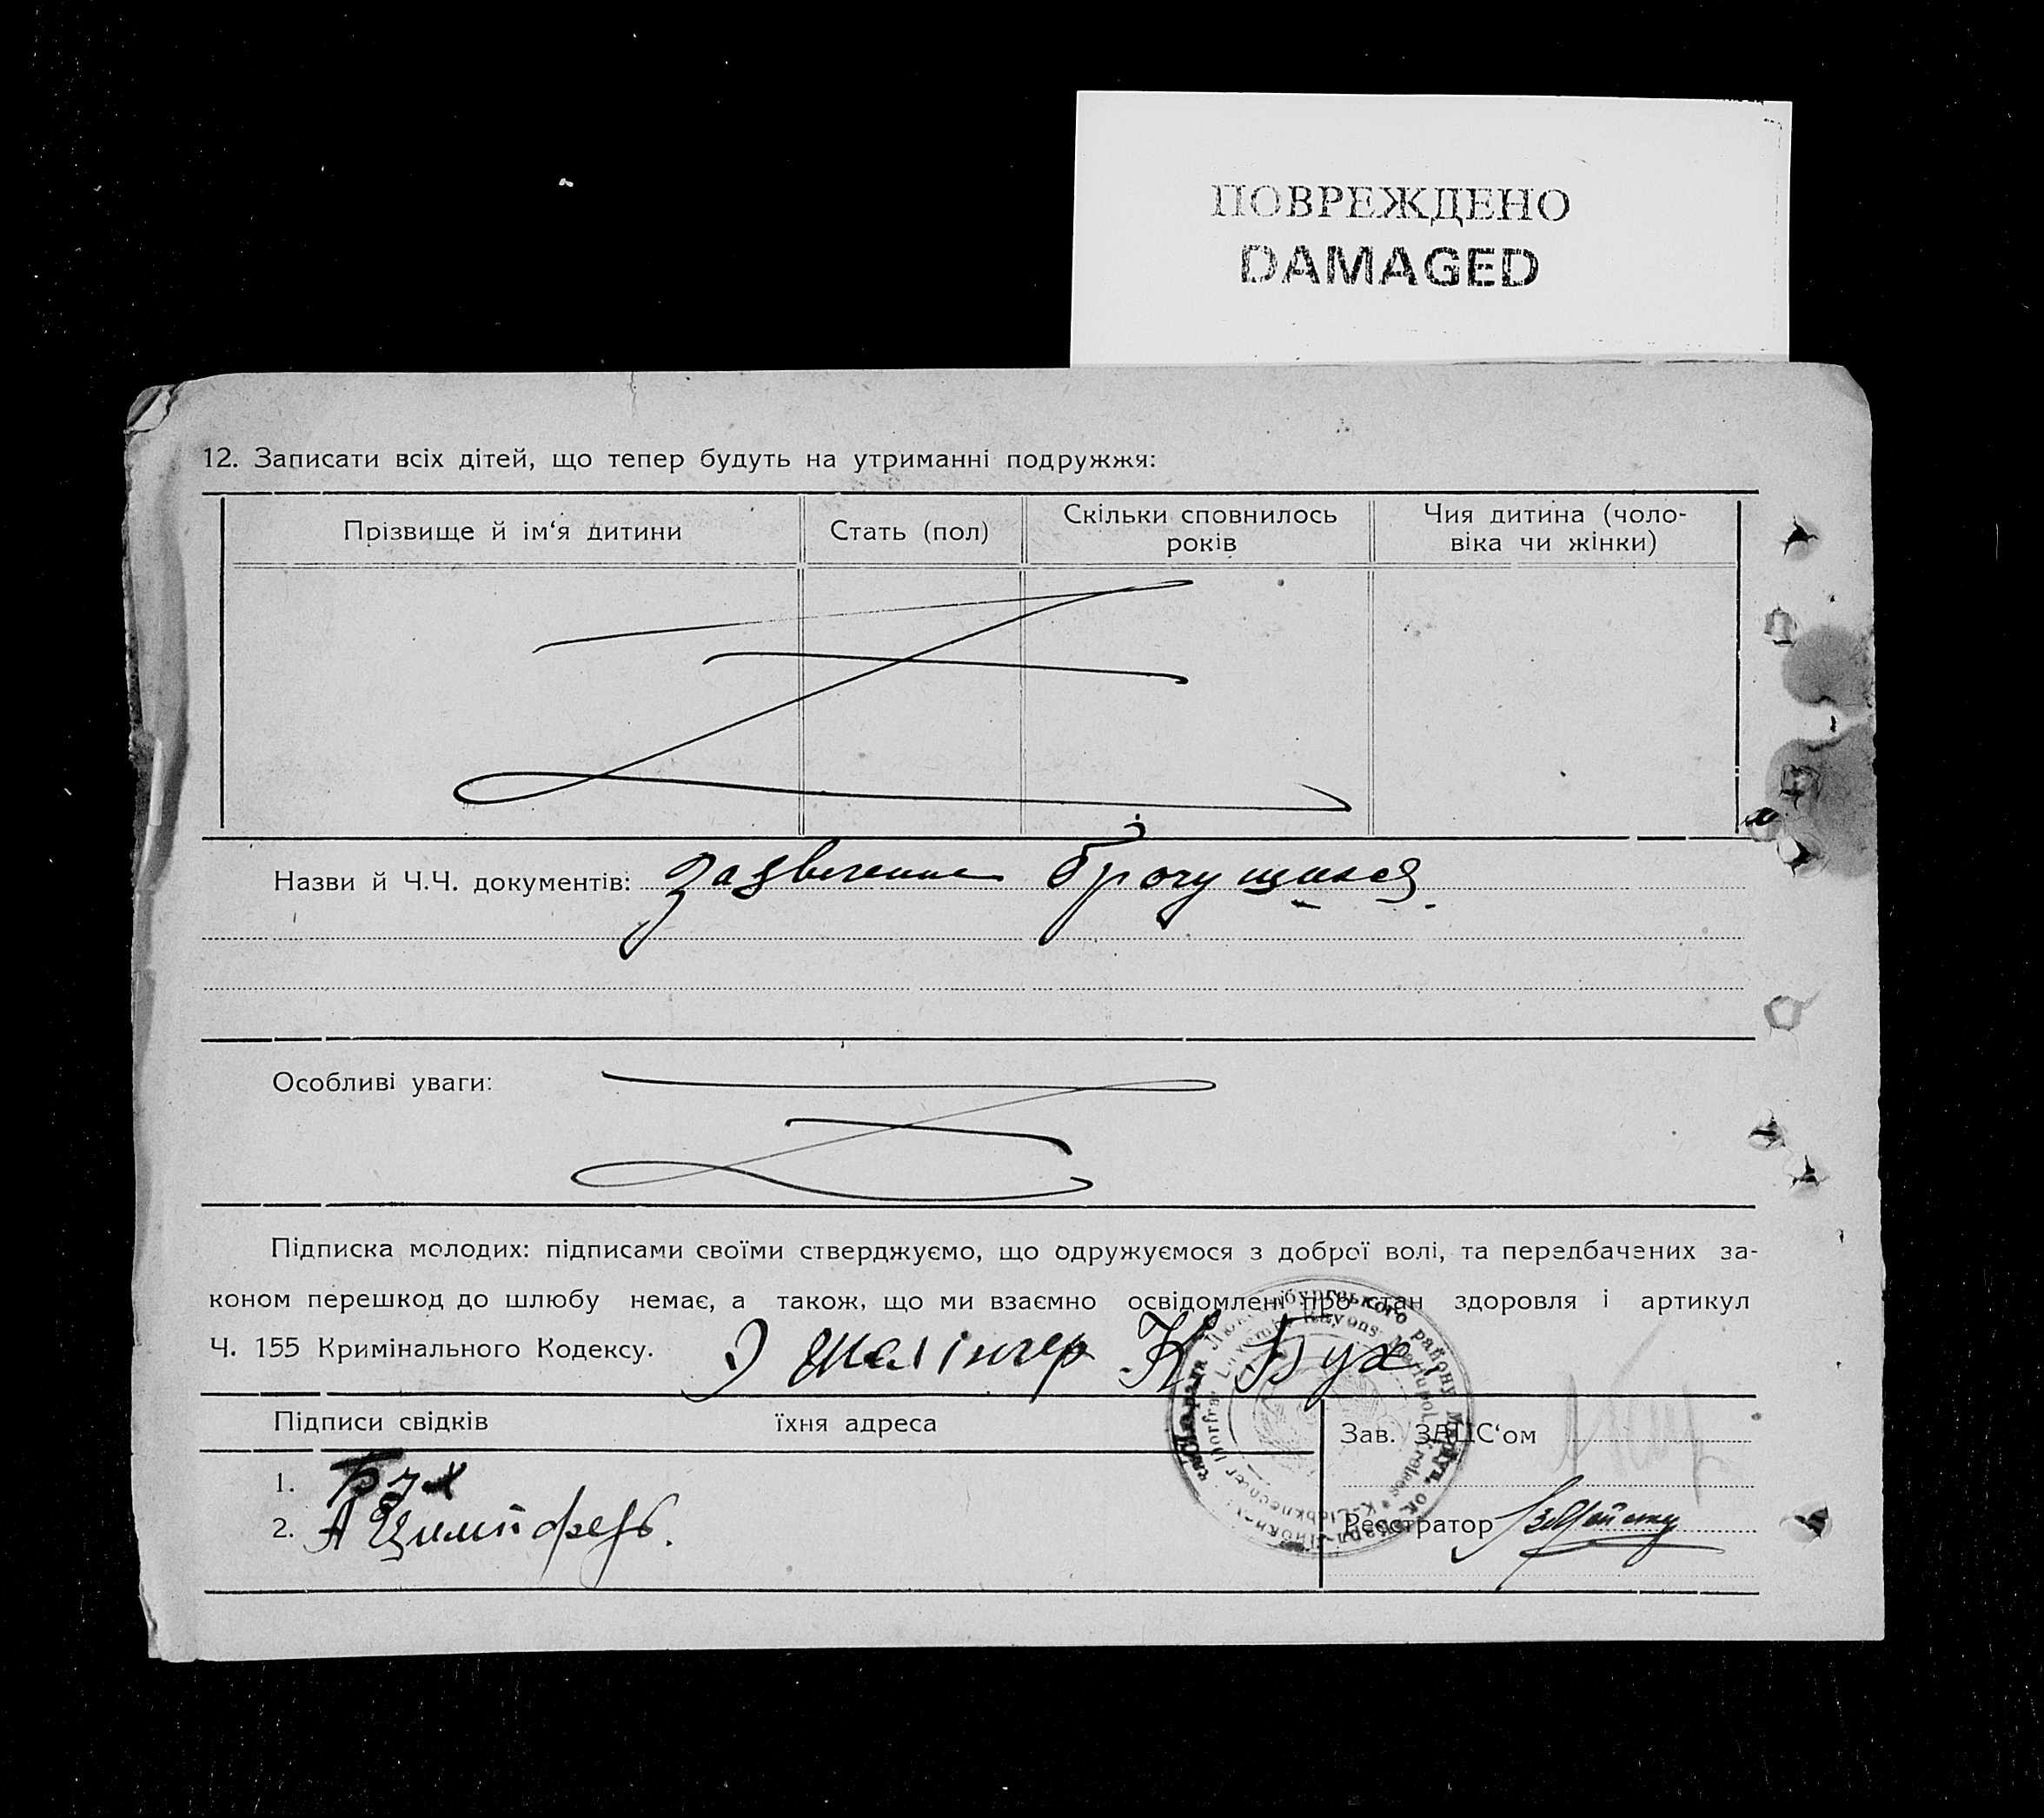 ПОВРЕЖДЕНО
DAMAGED
12. Записати всіх дітей, що тепер будуть на утриманні подружжя:
Прізвище й ім‘я дитини
Стать (пол)
Скільки сповнилось
років
Чия дитина (чоло-
віка чи жінки)
Назви й Ч.Ч. документів: брачущихся
Особливі уваги:
Підписка молодих: підписами своїми стверджуємо, що одружуємося з доброї волі, та передбачених за-
коном перешкод до шлюбу немає, а також, що ми взаємно освідомлені про стан здоровля і артикул
Ч. 155 Кримінального Кодексу. К Бух
Підписи свідків
їхня адреса
Зав. ЗАЦС‘ом
1. Бух
2. А
Реєстратор